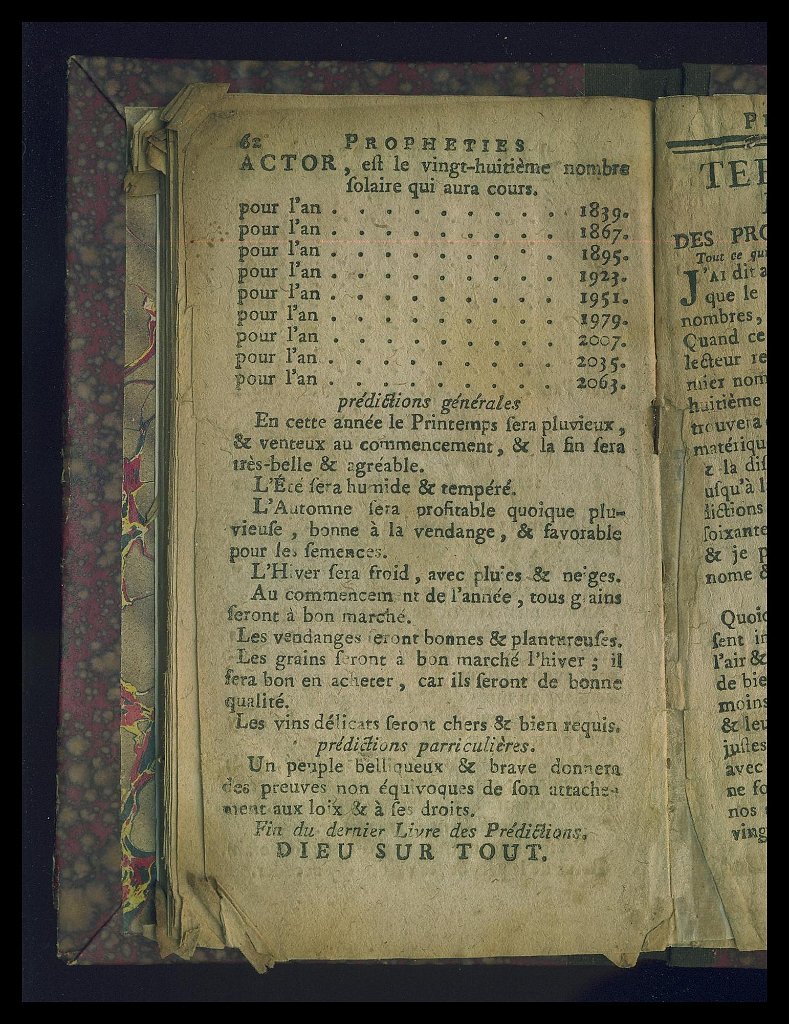 62 PROPHETIES
ACTOR, eſt le vingt-huitième nombre
ſolaire qui aura cours.
pour l'an . . . . . . . . . 1839.
pour l'an . . . . . . . . . 1867.
pour l'an . . . . . . . . . 1895.
pour l'an . . . . . . . . . 1923.
pour l'an . . . . . . . . . 1951.
pour l'an . . . . . . . . . 1979.
pour l'an . . . . . . . . . 2007.
pour l'an . . . . . . . . . 2035.
pour l'an . . . . . . . . . 2063.
prédictions générales
En cette année le Printemps ſera pluvieux,
& venteux au commencement, & la fin ſera
très-belle & agréable.
L'Été ſera humide & tempéré.
L'Automne ſera profitable quoique plu-
vieuſe, bonne à la vendange, & favorable
pour les ſemences.
L'Hiver ſera froid, avec pluies & neiges.
Au commencement de l'année, tous grains
ſeront à bon marché.
Les vendanges ſeront bonnes & plantureuſes.
Les grains ſeront à bon marché l'hiver ; il
ſera bon en acheter, car ils ſeront de bonne
qualité.
Les vins délicats ſeront chers & bien requis.
prédictions parriculières.
Un peuple belliqueux & brave donnera
des preuves non équivoques de ſon attache-
ment aux loix & à ſes droits.
Fin du dernier Livre des Prédictions.
DIEU SUR TOUT.
DES PRO
Tout ce qu
J'AI dit a
que le
nombres,
Quand ce
lecteur re
mier nom
huitième
trouvera
matériqu
& la diſ
uſqu'à l
dictions
ſoixante
& je p
nome &
Quoi
ſent in
l'air &
de bie
moins
& leu
juſtes
avec
ne ſo
nos
ving